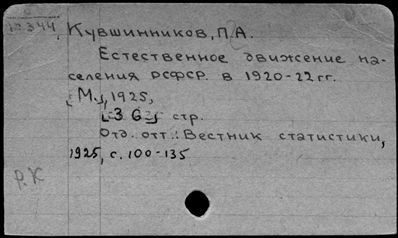 12344
Кувшинников, П. А.
Естественное движение на-
селения РСФСР. в 1920-22 гг.
[М.], 1925,
[36] стр.
Отд. отт.: Вестник статистики,
1925, с. 100-135
Р.К